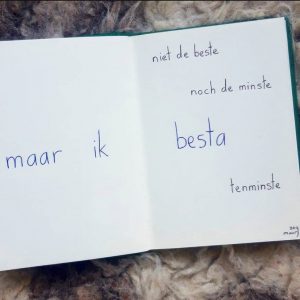 niet de beste
noch de minste
maar ik besta
tenminste